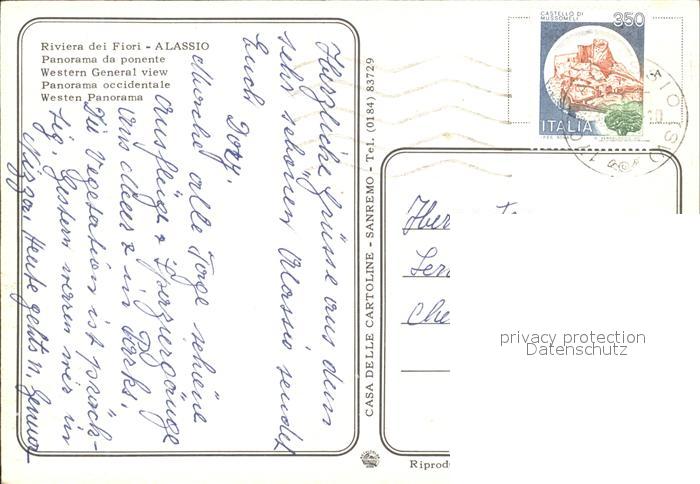 Riviera dei Fiori - ALASSIO
Panorama da ponente
Western General view
Panorama occidentale
Westen Panorama
Herzliche Grüsse aus dem
sehr schönen Alassio sendet
Euch Dory.
Mache alle Tage schöne
Ausflüge & Spaziergänge
ans Meer & in Parks.
Die Vegetation ist präch-
tig. Gestern waren wir in
Nizza. Heute gehts n. Genua
CASA DELLE CARTOLINE - SANREMO - Tel. (0184) 83729
CASTELLO DI
MUSSOMELI
350
ITALIA
privacy protection
Datenschutz
Riprod